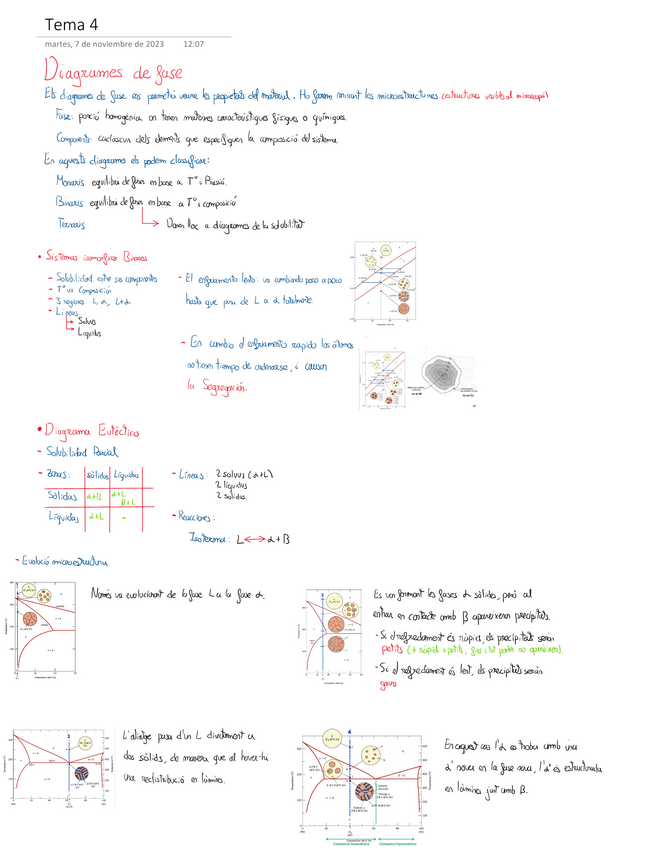 Tema 4
martes, 7 de noviembre de 2023 12:07
Diagrames de fase
Els diagrames de fase ens permetrà veure les propietats del material. Ho farem mirant les microestructures (estructures visibles al microscopi)
Fase: porció homogènia on tenen mateixes característiques físiques o químiques.
Components: cadascun dels elements que especifiquen la composició del sistema
En aquests diagrames els podem classificar:
Monaris equilibri de fases en base a Tº i Pressió.
Binaris equilibri de fases en base a Tº i composició
Ternaris
Donen lloc a diagrames de la solubilitat
• Sistemas isomorfos Binarios
- Solubilidad entre sus componentes
- Tº vs Composición
- 3 regiones L, α, L+α
- Líneas
Solvus
Liquidus
- El enfriamiento lento: va cambiando poco a poco
hasta que pasa de L a α totalmente.
- En cambio el enfriamiento rapido los átomos
no tienen tiempo de ordenarse, i causan
la Segregación.
• Diagrama Eutéctico
- Solubilidad Parcial
- Zonas: sólidas Líquidas
Sólidas α+B α+L
B+L
Líquidas α+L -
- Líneas: 2 solvus (α+L)
2 liquidus
2 solidas.
- Reacciones:
Isoterma: L ⟷ α+B
- Evolució microestructura
Només va evolucionant de la fase L a la fase α.
Es van formant les fases α sòlides, però al
entrar en contacte amb B apareixeran precipitats.
- Si el refredament és ràpid, els precipitats seràn
petits (+ ràpid + petits, fins i tot poden no aparèixer).
- Si el refredament és lent, els precipitats seràn
grans
L'aliatge passa d'un L directament a
dos sòlids, de manera que al haver-hi
una redistribució en làmines.
En aquest cas l'α es troba amb una
α' nova en la fase nova, l'α' es estructurada
en làmines junt amb B.